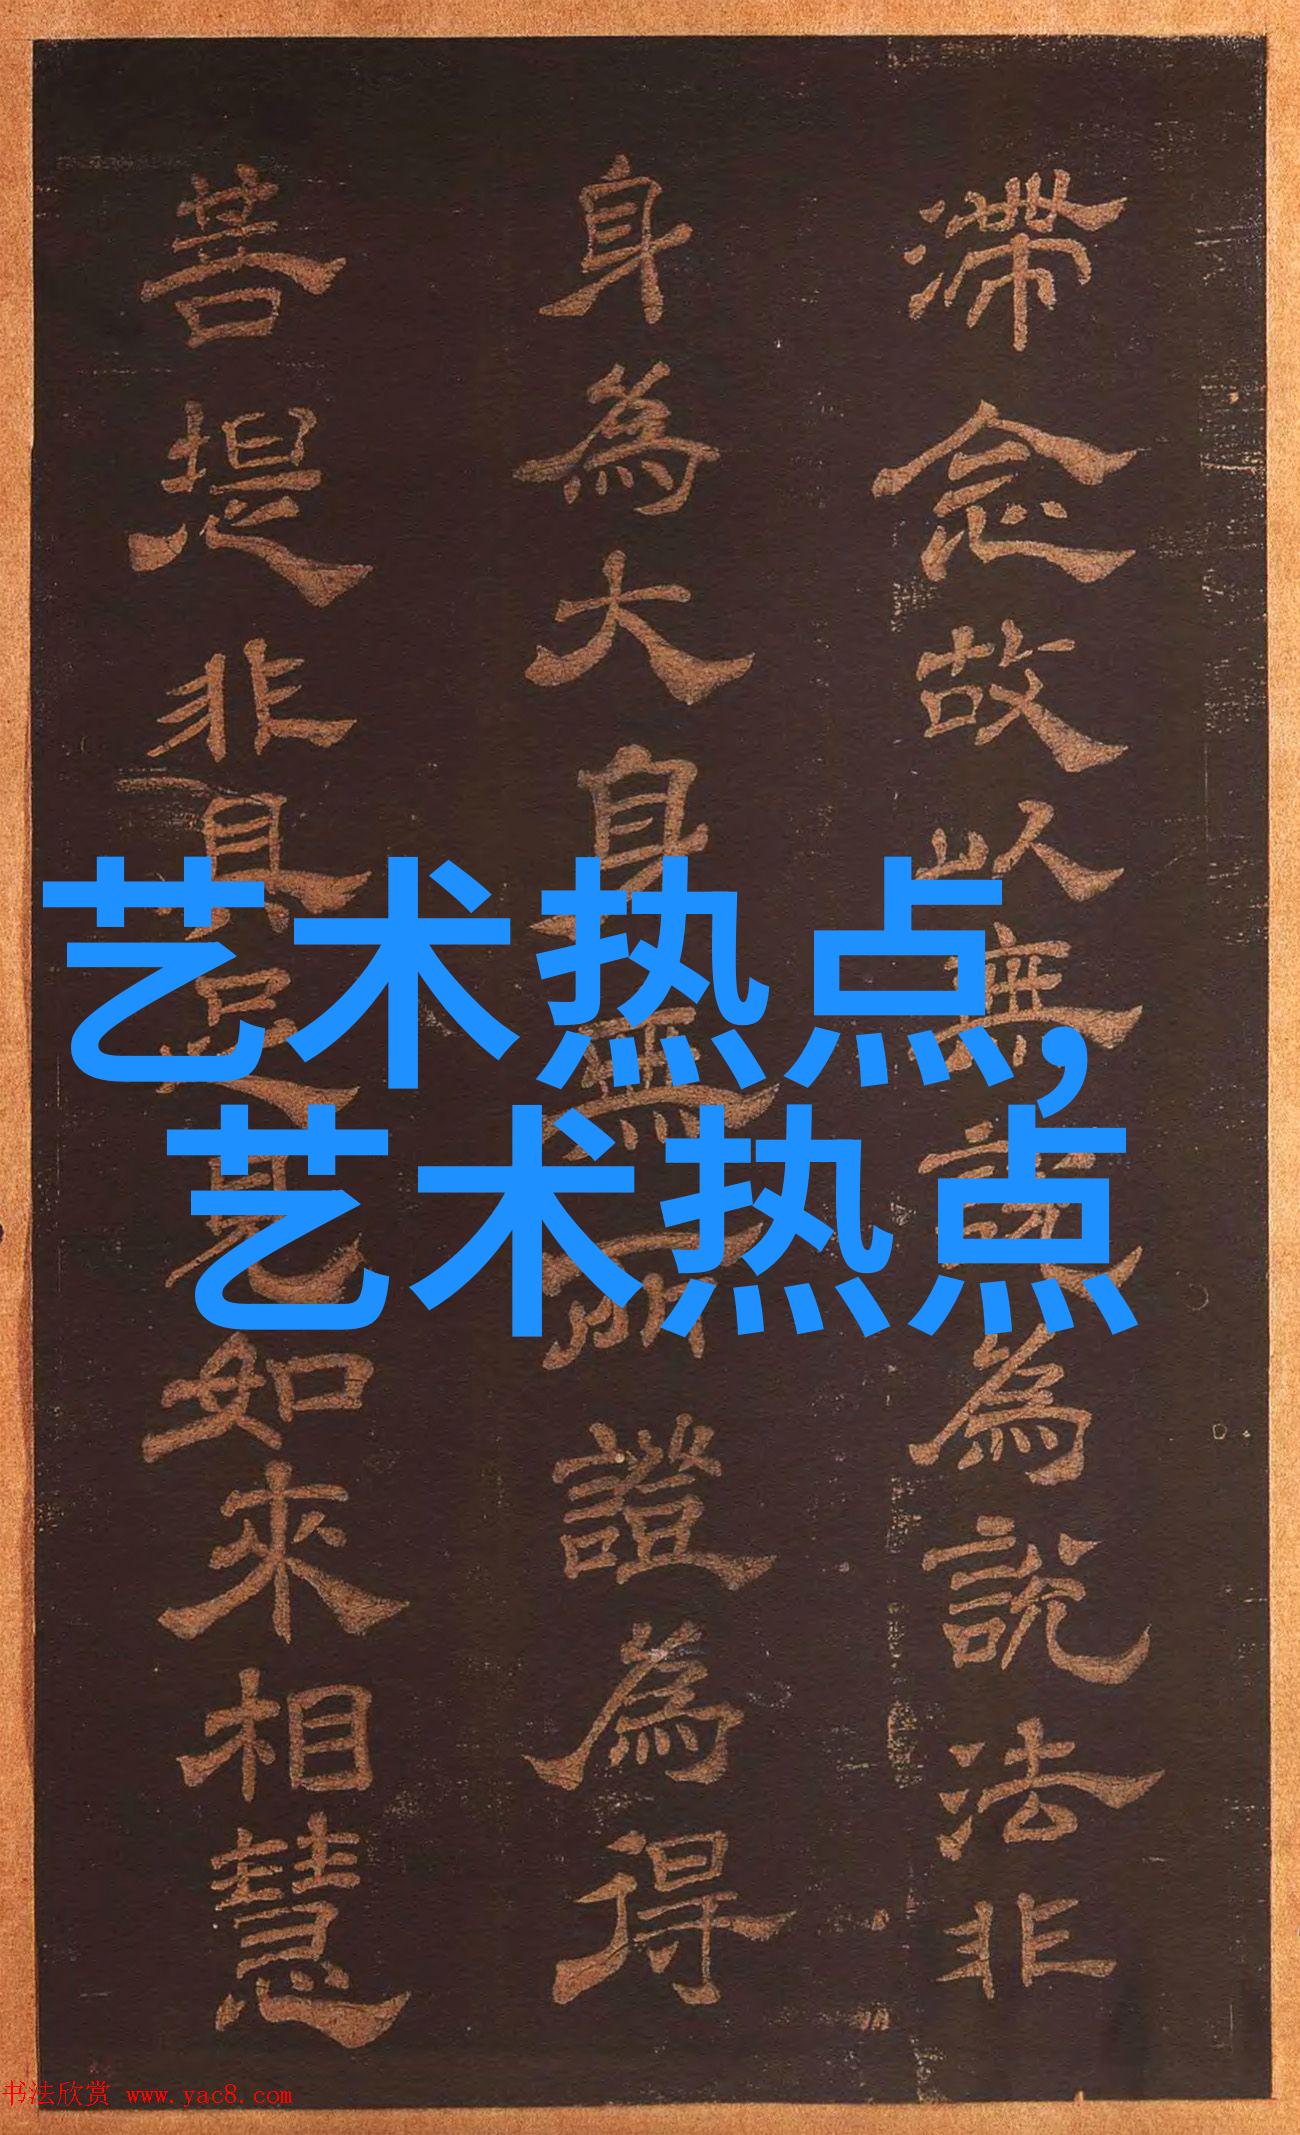 滯念故以無說為說法非
身為大身無所證為得
菩提非具足見如來相慧
艺术热点,
艺术热点
书法欣赏 www.yac8.com